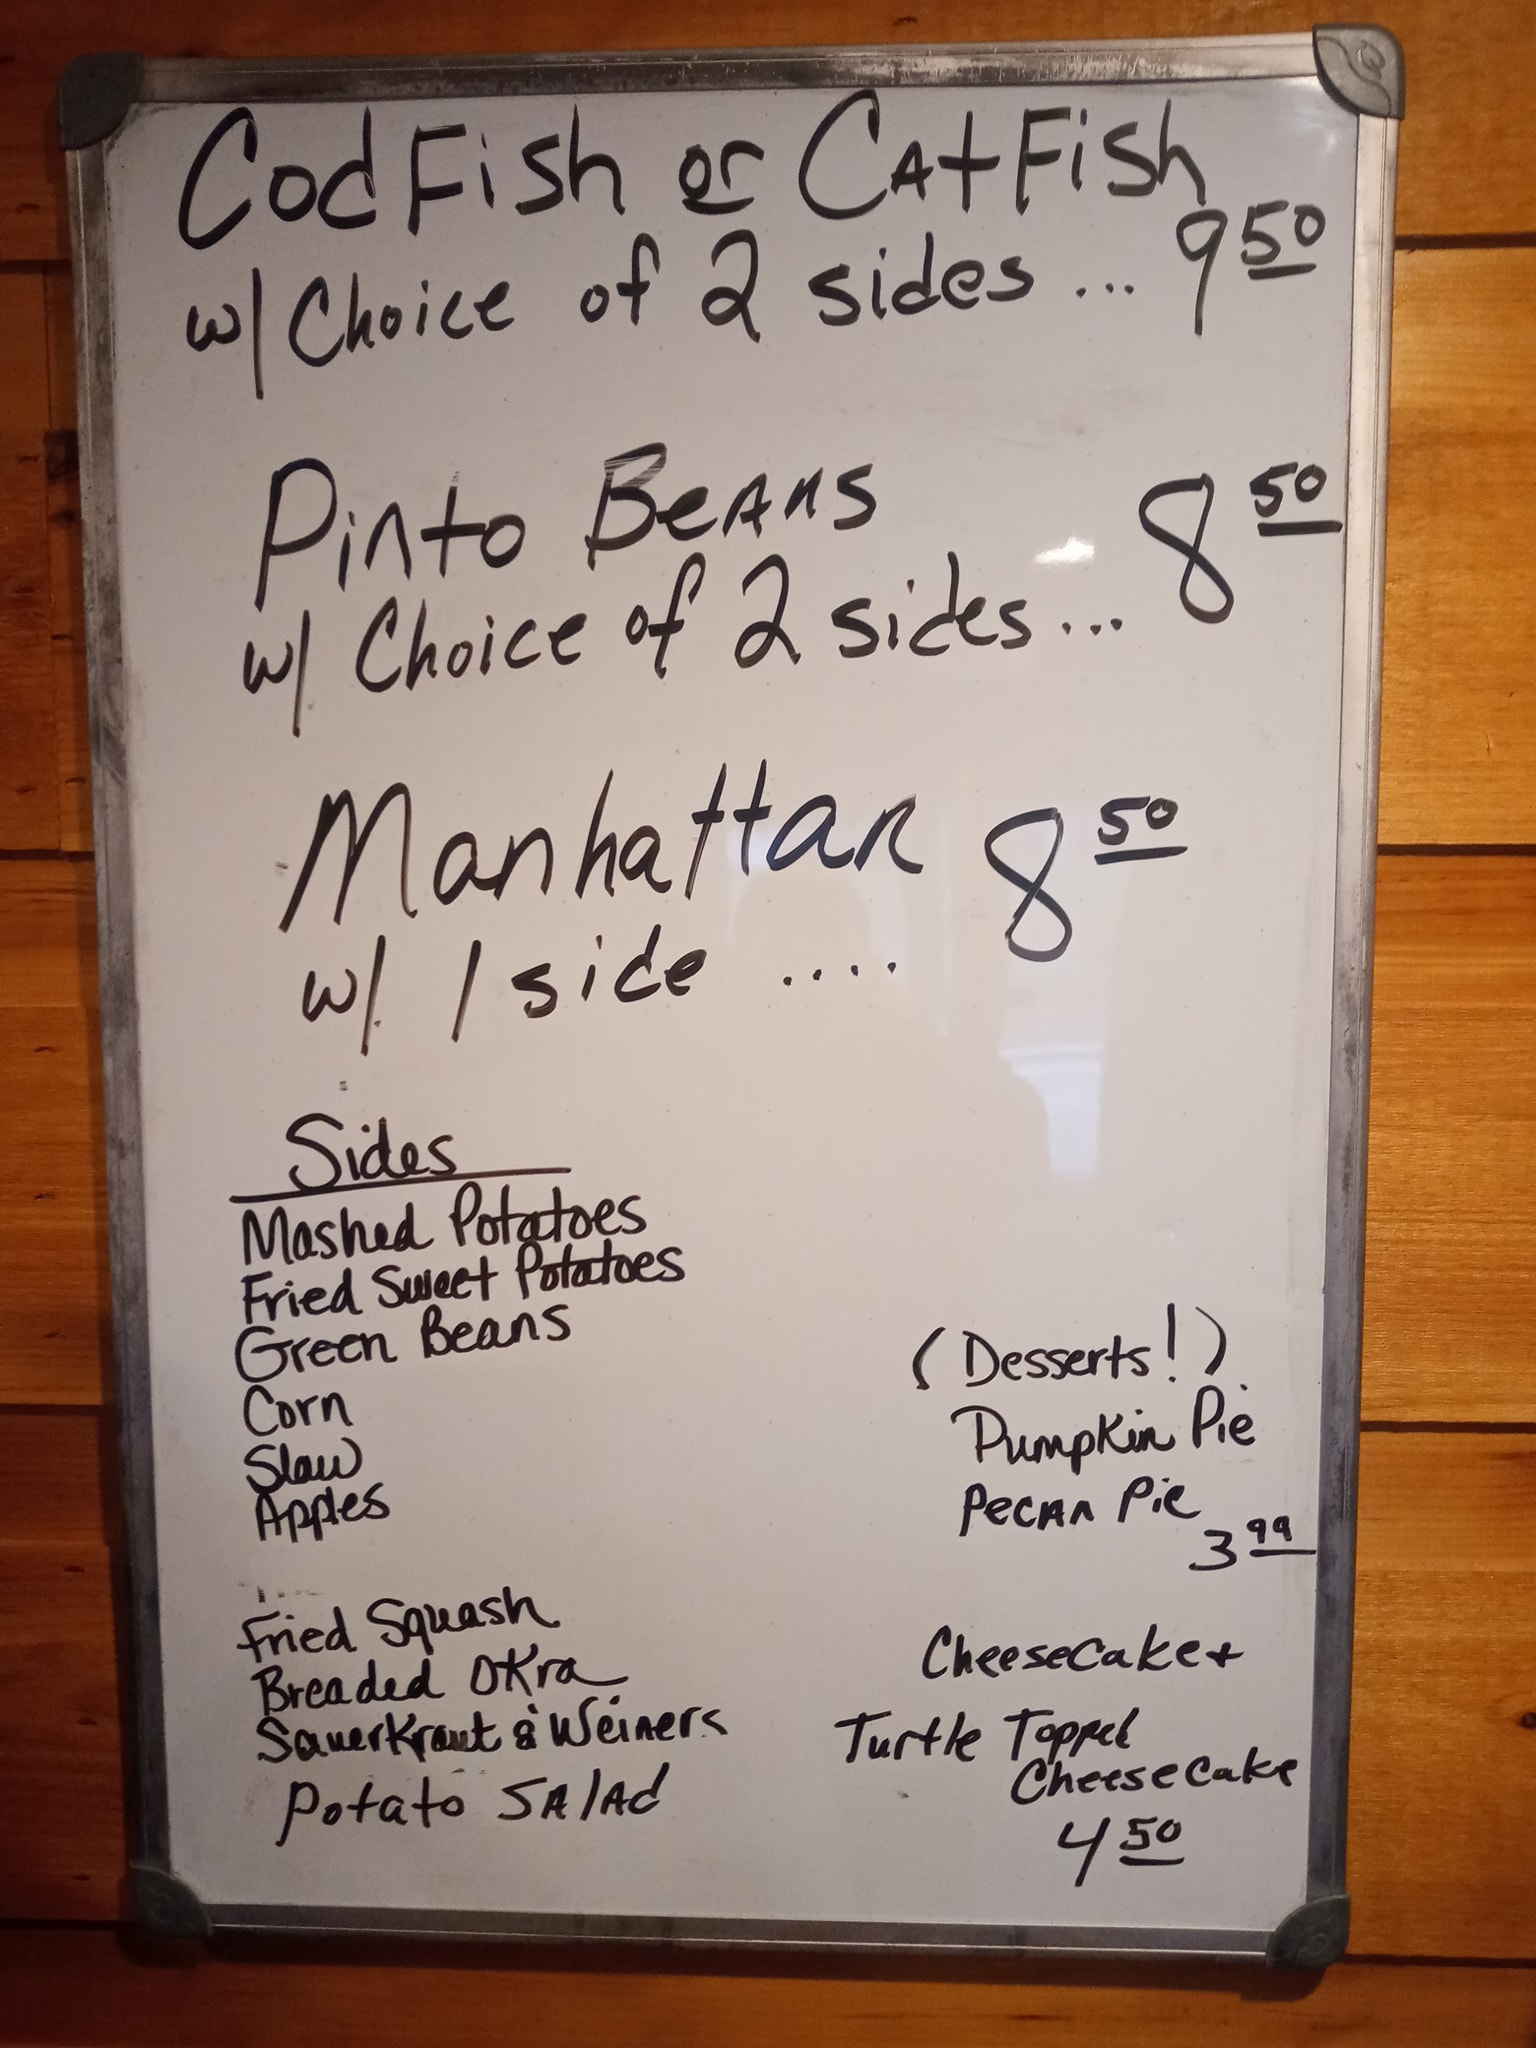 CodFish or CAtFish
w/ Choice of 2 sides ... 9 50
Pinto BeANS
w/ Choice of 2 sides ... 8 50
Manhattan 8 50
w/ 1 side ....
Sides
Mashed Potatoes
Fried Sweet Potatoes
Green Beans
Corn
Slaw
Apples
Fried Squash
Breaded OKra
SauerKraut & Weiners
Potato SAlAd
(Desserts!)
Pumpkin Pie
PeCAn Pie
3 99
CheeseCake +
Turtle Topped
CheeseCake
4 50